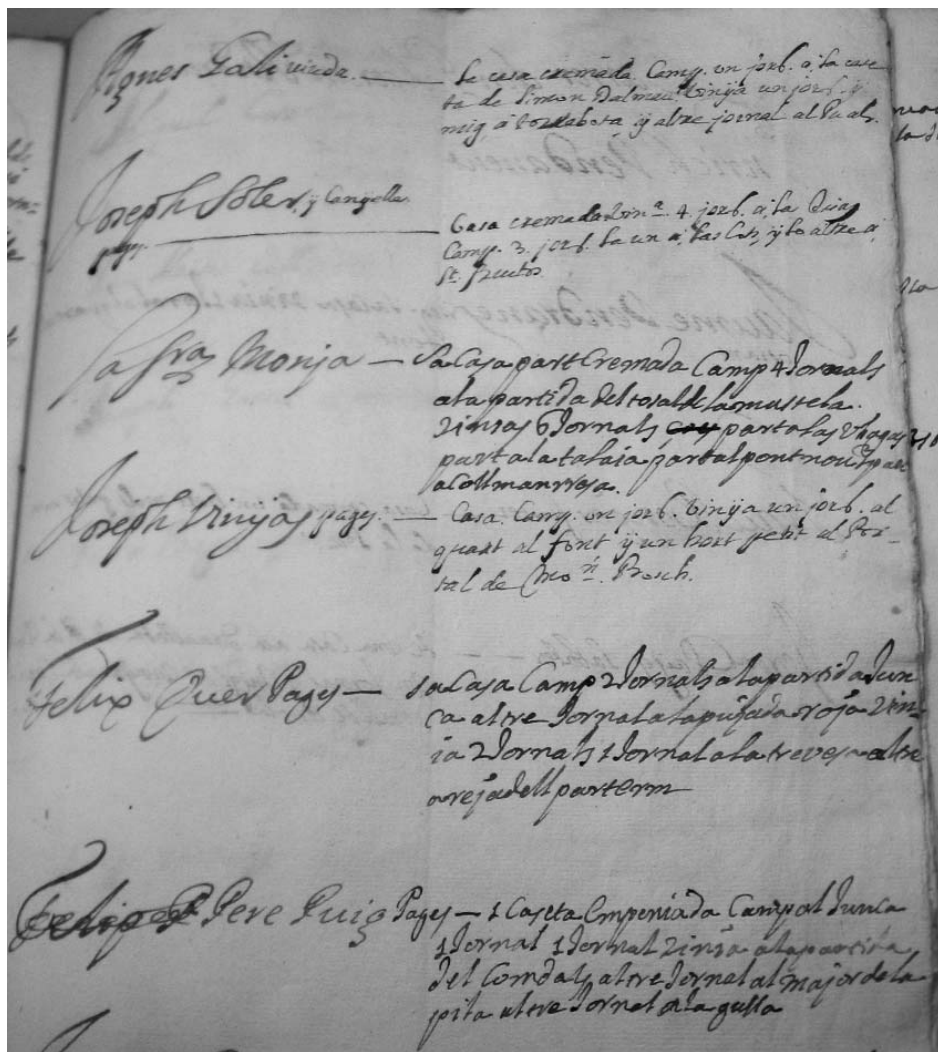 Agnes Gali viuda. — La casa cremada. Camp. un jorl. á la case
ta de Simon Dalmau Vinÿa un jorl. ÿ
mig á ÿ altre jornal al
Joseph Soler, ÿ Canÿelles
pages. — Casa cremada Vinª. 4. jorls. á la
Camp. 3. jorls. lo un á las ÿ lo altre á
St. Fruitos
La Sra Monja — Sa Casa part Cremada Camp 4 Jornals
ala partida del tosal de la mustela.
vinias 6 Jornals part a las
part ala talaia part al pont nou
a Collmanrresa.
Joseph Vinÿas pages. — Casa. Camp. un jorl. Vinÿa un jorl. al
quart al font ÿ un hort petit al Por-
tal de Mon. Bosch.
Felix Quer Pages — Sa Casa Camp 2 Jornals ala partida Jun
ca altre Jornal ala pujada roja vin-
ia 2 Jornals 1 Jornal ala trevesa altre
a rejadell parterm
Pere Puig Pages — 1 Caseta Empeniada Camp al Junca
1 Jornal 1 Jornal vinia ala partida
del Comdals altre Jornal al major de la
pita altre Jornal ala gulla